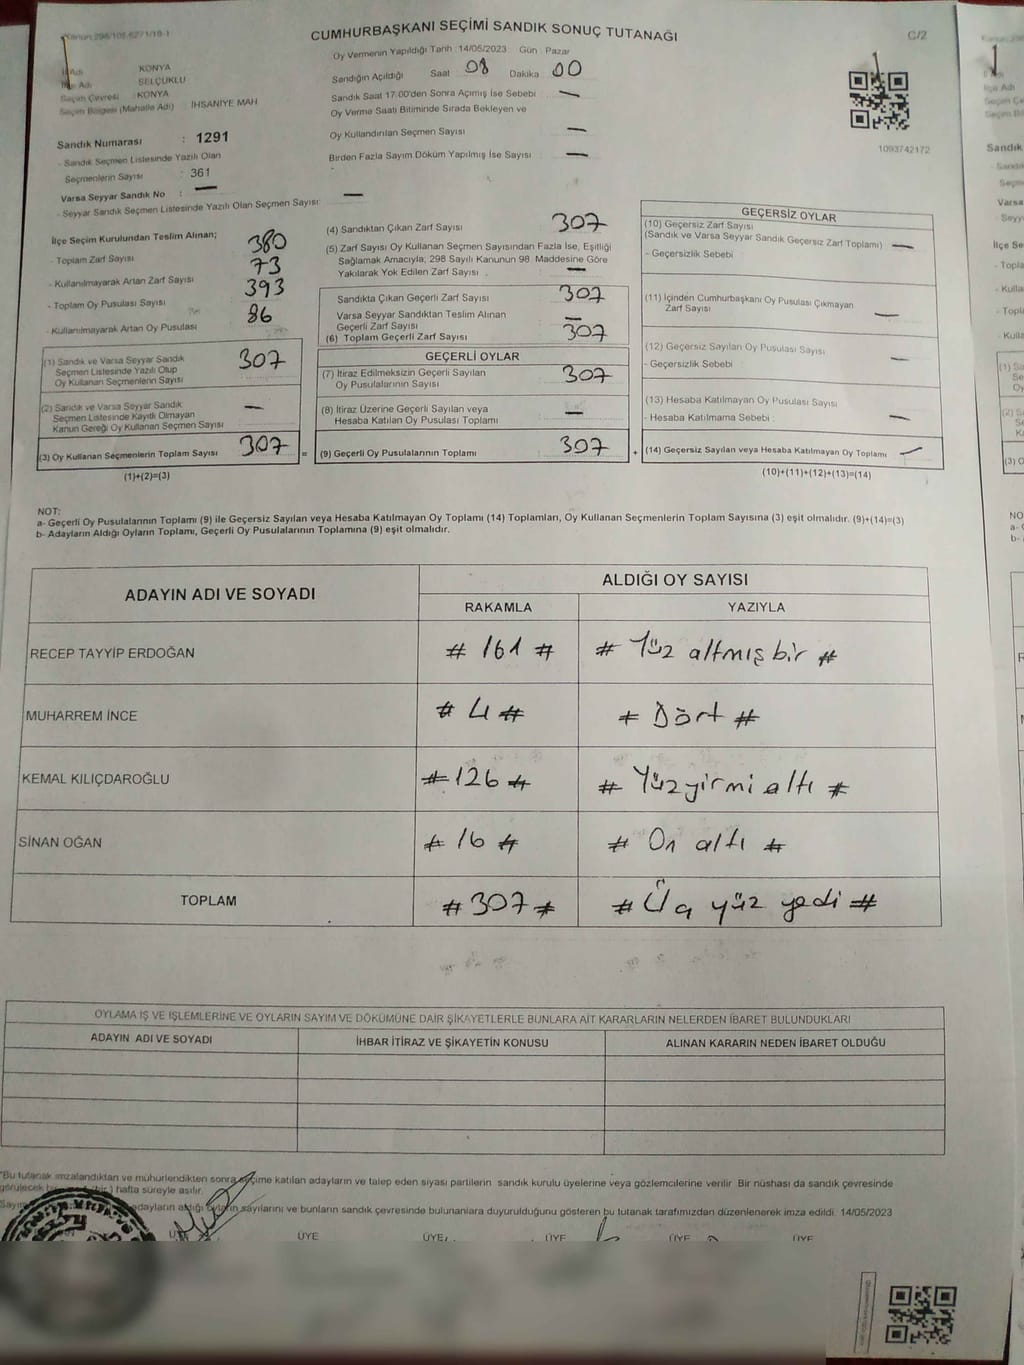 CUMHURBAŞKANI SEÇİMİ SANDIK SONUÇ TUTANAĞI
C/2
Oy Vermenin Yapıldığı Tarih :14/05/2023 Gün : Pazar
İlçe Adı
KONYA
SELÇUKLU
Seçim Çevresi : KONYA
Seçim Bölgesi (Mahalle Adı) : İHSANİYE MAH
Sandığın Açıldığı Saat 08 Dakika 00
Sandık Saat 17:00'den Sonra Açılmış İse Sebebi —
Oy Verme Saati Bitiminde Sırada Bekleyen ve
Oy Kullandırılan Seçmen Sayısı —
Birden Fazla Sayım Döküm Yapılmış İse Sayısı —
1093742172
Sandık Numarası : 1291
- Sandık Seçmen Listesinde Yazılı Olan
Seçmenlerin Sayısı : 361
Varsa Seyyar Sandık No : —
- Seyyar Sandık Seçmen Listesinde Yazılı Olan Seçmen Sayısı: —
İlçe Seçim Kurulundan Teslim Alınan;
- Toplam Zarf Sayısı 380
- Kullanılmayarak Artan Zarf Sayısı 73
- Toplam Oy Pusulası Sayısı 393
- Kullanılmayarak Artan Oy Pusulası 86
(1) Sandık ve Varsa Seyyar Sandık
Seçmen Listesinde Yazılı Olup
Oy Kullanan Seçmenlerin Sayısı 307
(2) Sandık ve Varsa Seyyar Sandık
Seçmen Listesinde Kayıtlı Olmayan
Kanun Gereği Oy Kullanan Seçmen Sayısı —
(3) Oy Kullanan Seçmenlerin Toplam Sayısı 307 =
(1)+(2)=(3)
(4) Sandıktan Çıkan Zarf Sayısı 307
(5) Zarf Sayısı Oy Kullanan Seçmen Sayısından Fazla İse, Eşitliği
Sağlamak Amacıyla; 298 Sayılı Kanunun 98. Maddesine Göre
Yakılarak Yok Edilen Zarf Sayısı —
Sandıkta Çıkan Geçerli Zarf Sayısı 307
Varsa Seyyar Sandıktan Teslim Alınan
Geçerli Zarf Sayısı —
(6) Toplam Geçerli Zarf Sayısı 307
GEÇERLİ OYLAR
(7) İtiraz Edilmeksizin Geçerli Sayılan
Oy Pusulalarının Sayısı 307
(8) İtiraz Üzerine Geçerli Sayılan veya
Hesaba Katılan Oy Pusulası Toplamı —
(9) Geçerli Oy Pusulalarının Toplamı 307 +
GEÇERSİZ OYLAR
(10) Geçersiz Zarf Sayısı
(Sandık ve Varsa Seyyar Sandık Geçersiz Zarf Toplamı) —
- Geçersizlik Sebebi
(11) İçinden Cumhurbaşkanı Oy Pusulası Çıkmayan
Zarf Sayısı —
(12) Geçersiz Sayılan Oy Pusulası Sayısı —
- Geçersizlik Sebebi
(13) Hesaba Katılmayan Oy Pusulası Sayısı
- Hesaba Katılmama Sebebi : —
(14) Geçersiz Sayılan veya Hesaba Katılmayan Oy Toplamı —
(10)+(11)+(12)+(13)=(14)
NOT:
a- Geçerli Oy Pusulalarının Toplamı (9) ile Geçersiz Sayılan veya Hesaba Katılmayan Oy Toplamı (14) Toplamları, Oy Kullanan Seçmenlerin Toplam Sayısına (3) eşit olmalıdır. (9)+(14)=(3)
b- Adayların Aldığı Oyların Toplamı, Geçerli Oy Pusulalarının Toplamına (9) eşit olmalıdır.
ADAYIN ADI VE SOYADI
ALDIĞI OY SAYISI
RAKAMLA YAZIYLA
RECEP TAYYİP ERDOĞAN # 161 # # Yüz altmış bir #
MUHARREM İNCE # 4 # # Dört #
KEMAL KILIÇDAROĞLU # 126 # # Yüz yirmi altı #
SİNAN OĞAN # 16 # # On altı #
TOPLAM # 307 # # Üç yüz yedi #
OYLAMA İŞ VE İŞLEMLERİNE VE OYLARIN SAYIM VE DÖKÜMÜNE DAİR ŞİKAYETLERLE BUNLARA AİT KARARLARIN NELERDEN İBARET BULUNDUKLARI
ADAYIN ADI VE SOYADI İHBAR İTİRAZ VE ŞİKAYETİN KONUSU ALINAN KARARIN NEDEN İBARET OLDUĞU
*Bu tutanak imzalandıktan ve mühürlendikten sonra seçime katılan adayların ve talep eden siyasi partilerin sandık kurulu üyelerine veya gözlemcilerine verilir. Bir nüshası da sandık çevresinde
görülecek bir (bir ) hafta süreyle asılır.
adayların aldığı oyların sayılarını ve bunların sandık çevresinde bulunanlara duyurulduğunu gösteren bu tutanak tarafımızdan düzenlenerek imza edildi. 14/05/2023
ÜYE ÜYE ÜYE ÜYE ÜYE